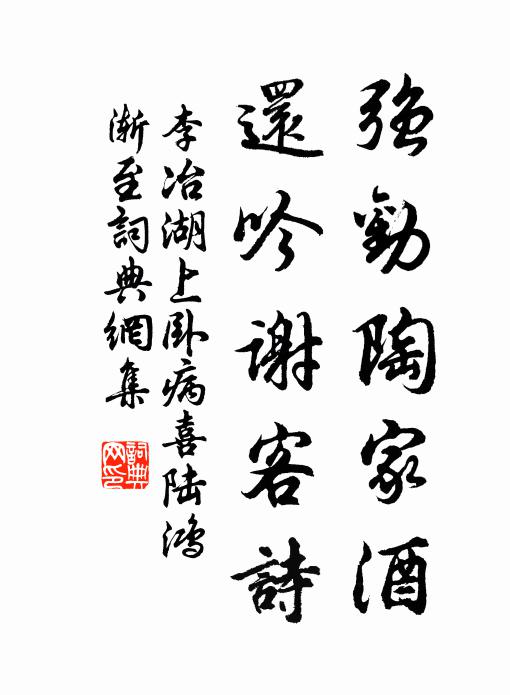 強勸陶家酒
還吟謝客詩
李冶湖上卧病喜陆鸿
漸至詞典網集
詞典
网印